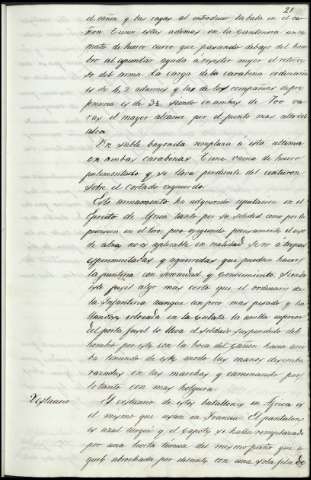 21
el cañon y las rayas al introducir la bala en el ca-
ñon. Tienen estas ademas en la Cantinera un
de hueco curvo que pasando debajo del hom-
bro al apuntar ayuda a resistir mejor el retroce-
so del arma. La carga de la carabina ordinaria
es de 4,2 adarmes y la de las compañias de pre-
ferencia es de 3½ siendo en ambas de 700 va-
ras el mayor alcance por el punto mas alto del
alza.
Un sable bayoneta remplaza á esta ultima
en ambas carabinas. Tiene vaina de hierro
pabonado y se lleva pendiente del cinturon
sobre el costado izquierdo.
Este armamento ha adquirido reputacion en el
Ejercito de Africa tanto por su solidez como por la
precision en el tiro, pero exigiendo precisamente el uso
de alza no es aplicable en realidad si no á tropas
esperimentadas y aguerridas que puedan hacer
la punteria con serenidad y conocimiento. Siendo
este fusil algo mas corto que el ordinario de
la Infanteria aunque un poco mas pesado y la
colocada en la culata la anilla inferior
del porta fusil lo lleva el soldado suspendido del
hombro por este con la boca del cañon hacia arri-
ba teniendo de este modo las manos desemba-
razadas en las marchas y caminando por
lo tanto con mas holgura.
Vestuario El vestuario de estos batallones en Africa es
el mismo que usan en Francia. El pantalon
es azul turqui y el capote se halla remplazado
por una levita tunica del mismo paño que a-
quel abrochada por delante con una sola fila de